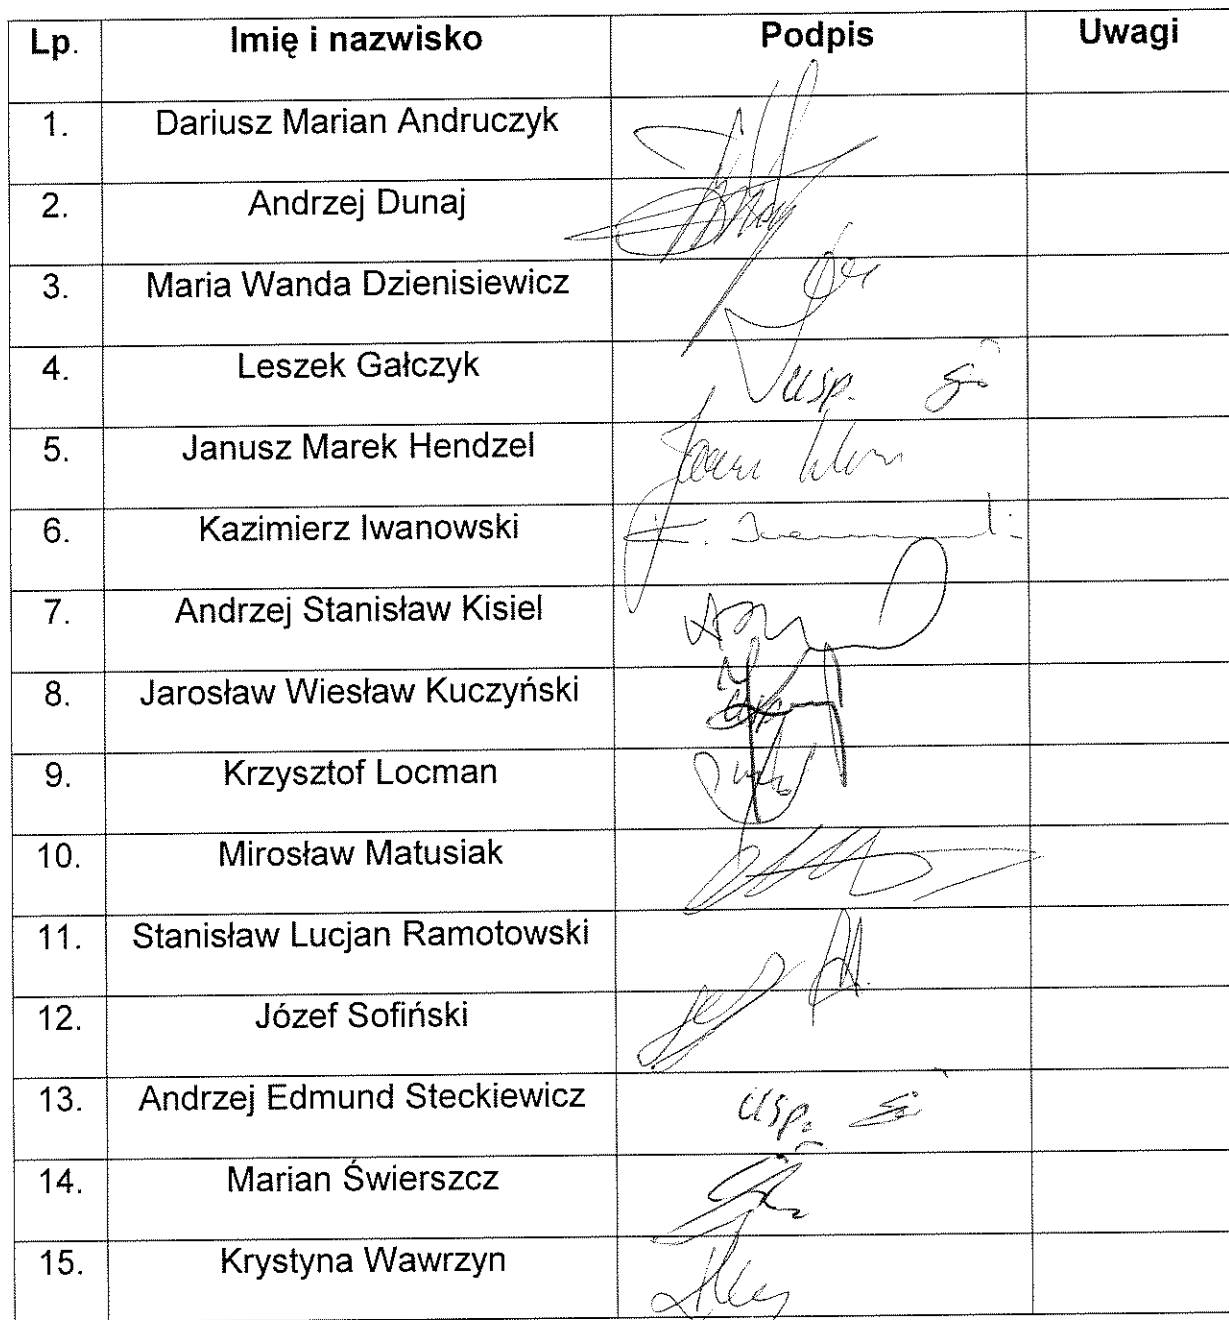 Lp. Imię i nazwisko Podpis Uwagi
1. Dariusz Marian Andruczyk
2. Andrzej Dunaj
3. Maria Wanda Dzienisiewicz
4. Leszek Gałczyk usp.
5. Janusz Marek Hendzel
6. Kazimierz Iwanowski
7. Andrzej Stanisław Kisiel
8. Jarosław Wiesław Kuczyński
9. Krzysztof Locman
10. Mirosław Matusiak
11. Stanisław Lucjan Ramotowski
12. Józef Sofiński
13. Andrzej Edmund Steckiewicz usp.
14. Marian Świerszcz
15. Krystyna Wawrzyn